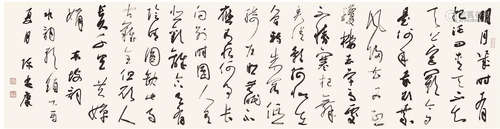 明月几时有
把酒问青天不知
天上宫阙今夕
是何年我欲乘
风归去又恐
琼楼玉宇高处
不胜寒起舞
弄清影何似在
人间转朱阁低
绮户照无眠不
应有恨何事长
向别时圆人有
悲欢离合月有
阴晴圆缺此事
古难全但愿人
长久千里共婵
娟 苏轼词
水调歌头
夏月